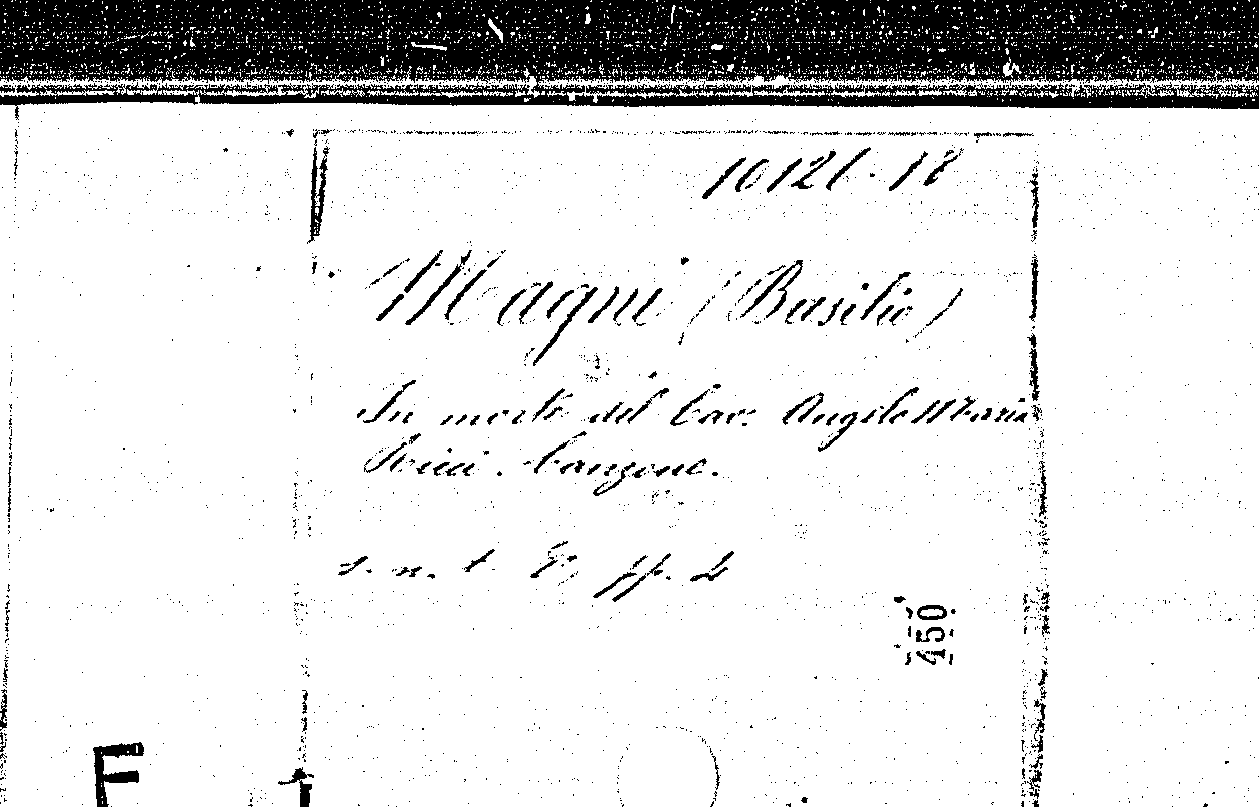 10121. 18
Magni (Basilio)
In morte del Cav. Angelo Maria
Ricci. Canzone.
s. n. t. 8°, pp. 4
450
F